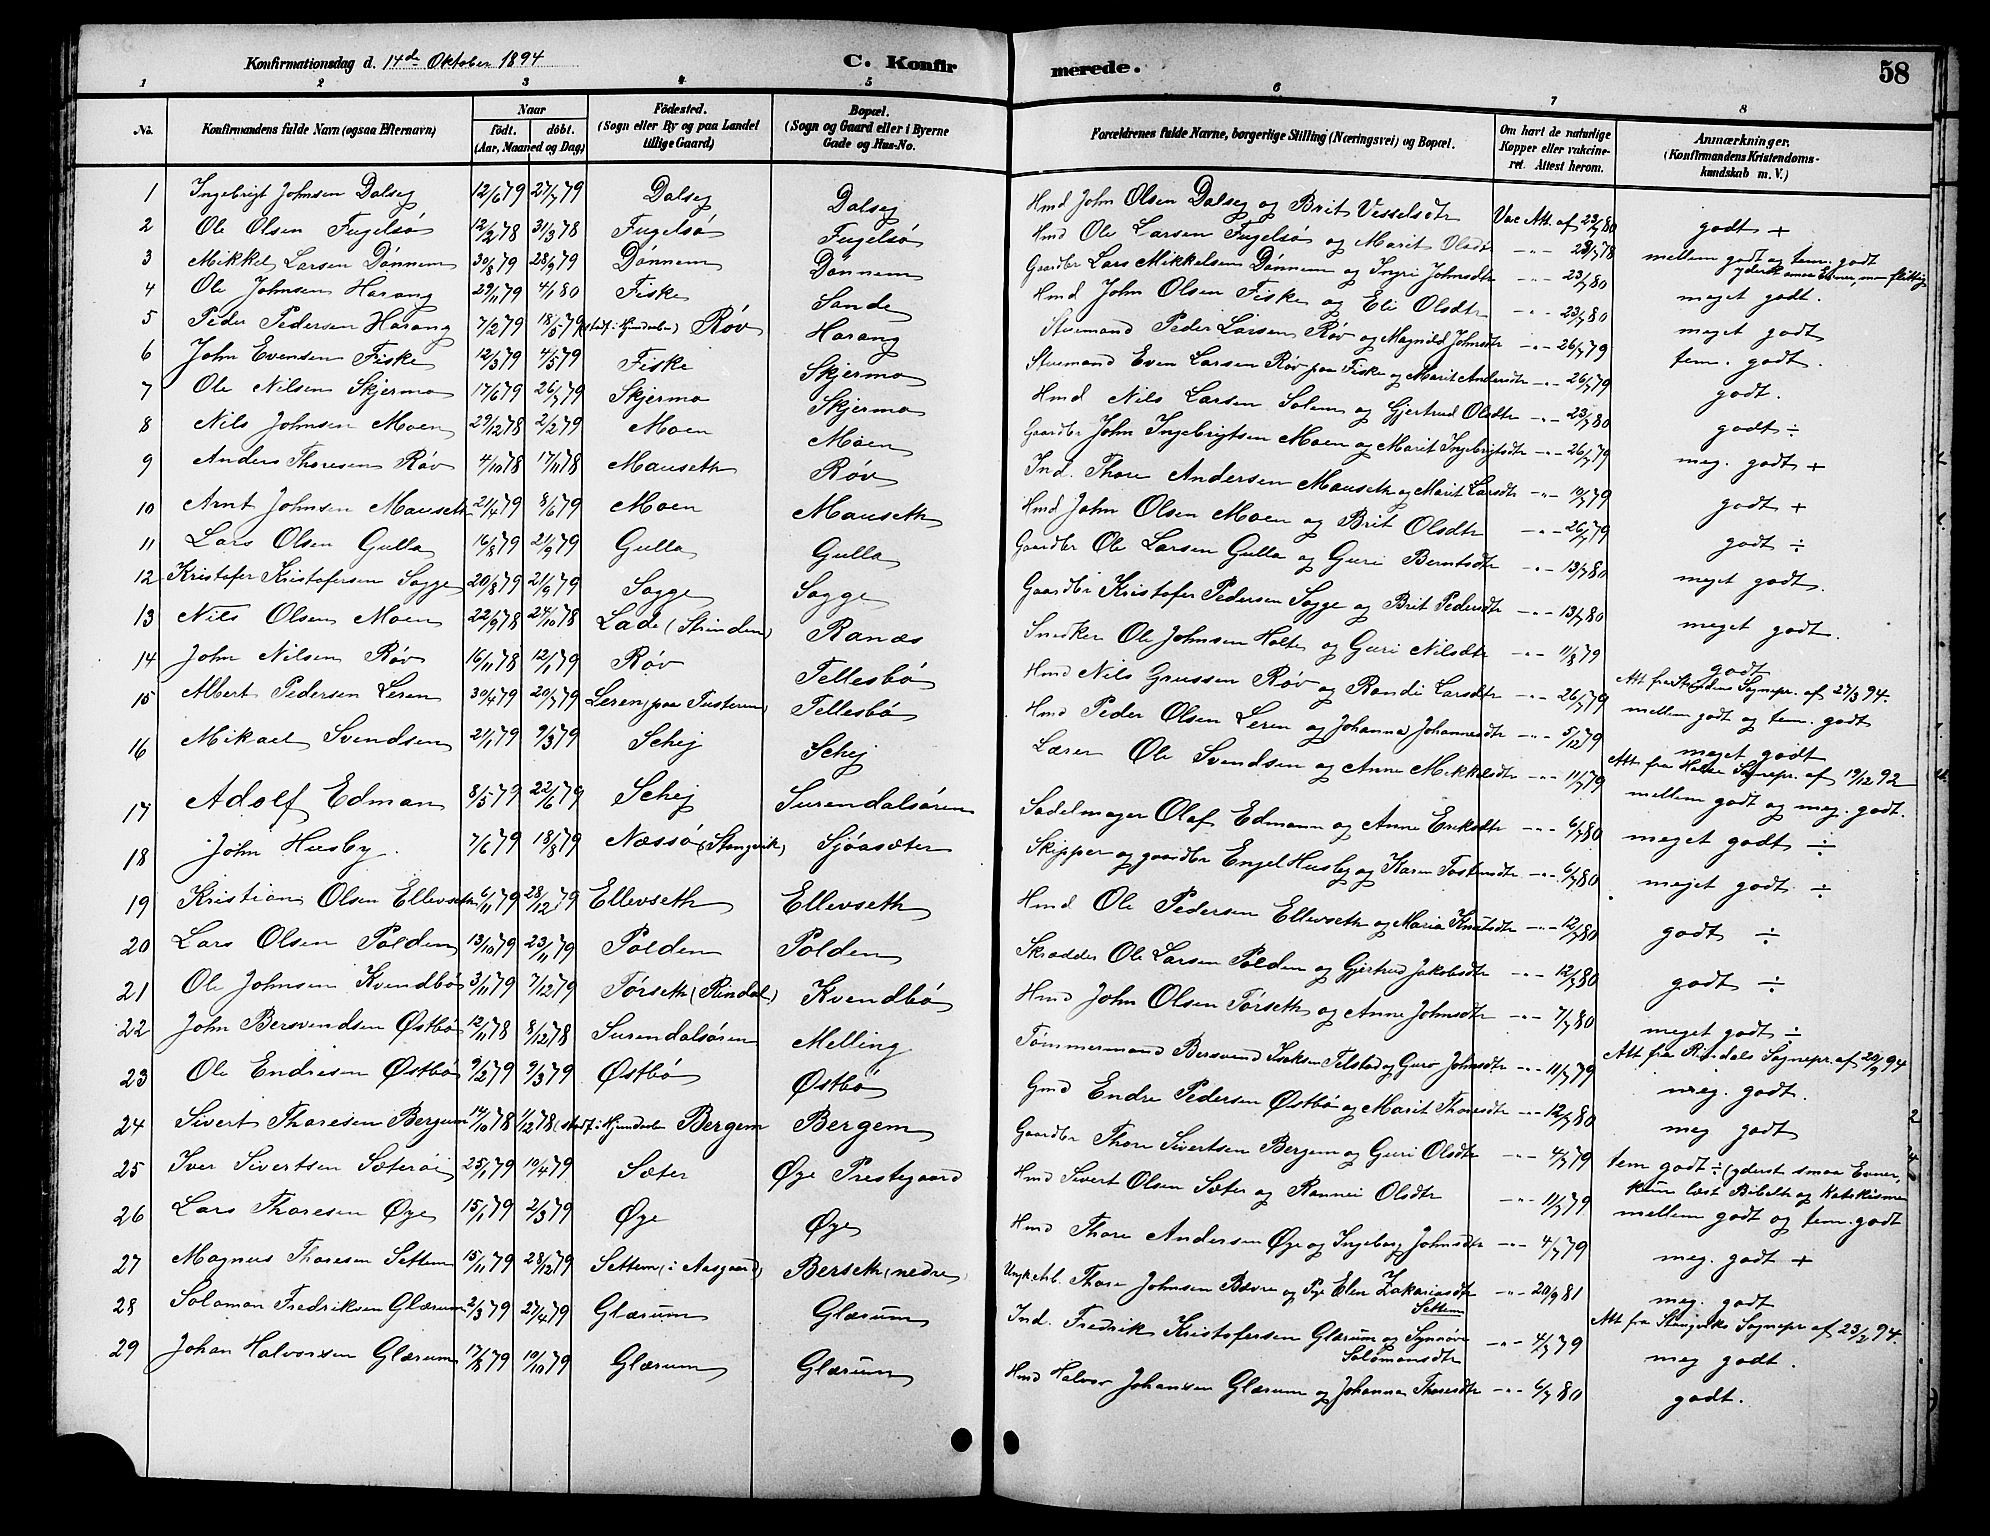 Konfirmationsdag d. 14de Oktober 1894
C. Konfirmerede.
58
1 2 3 4 5 6 7 8
No. Konfirmandens fulde Navn (ogsaa Efternavn) Naar født. døbt. (Aar, Maaned og Dag) Fødested. (Sogn eller By og paa Landet tillige Gaard) Bopæl. (Sogn og Gaard eller i Byerne Gade og Hus-No. Forældrenes fulde Navne, borgerlige Stilling (Næringsvei) og Bopæl. Om havt de naturlige Kopper eller vakcineret. Attest herom. Anmærkninger. (Konfirmandens Kristendomskundskab m. V.)
1 Ingebrigt Johnsen Dalseg 12/6 79 27/7 79 Dalseg Dalseg Hmd John Olsen Dalseg og Brit Vesselsdtr Vac Att. af 23/7 80 godt +
2 Ole Olsen Fugelsø 12/2 78 31/3 78 Fugelsø Fugelsø Hmd Ole Larsen Fugelsø og Marit Olsdtr -"- mellem godt og tem. godt
3 Mikkel Larsen Dønnem 30/8 79 28/9 79 Dønnem Dønnem Gaardbr Lars Mikkelsen Dønnem og Ingri Johnsdtr -"- 23/7 80 meget godt.
4 Ole Johnsen Harang 29/11 79 4/1 80 Fiske Sande Hmd John Olsen Fiske og Eli Olsdtr -"- 23/7 80 meget godt
5 Peder Pedersen Harang 7/2 79 18/5 79 Røv Harang Stuemand Peder Larsen Røv og Magnild Johnsdtr -"- 26/7 79 tem. godt.
6 John Evensen Fiske 12/3 79 4/5 79 Fiske Skjermo Stuemand Even Larsen Røv paa Fiske og Marit Andersdtr -"- 26/7 79 godt.
7 Ole Nilsen Skjermo 17/6 79 26/7 79 Skjermo Skjermo Hmd Nils Larsen Solem og Gjertrud Olsdtr -"- 23/7 80 godt ÷
8 Nils Johnsen Moen 29/12 78 2/2 79 Moen Moen Gaardbr John Ingebrigtsen Moen og Marit Ingebrigtsdtr -"- 26/7 79 meg. godt +
9 Anders Thoresen Røv 4/10 78 17/11 78 Mauseth Røv Ind. Thore Andersen Mauseth og Marit Larsdtr -"- 10/7 79 godt +
10 Arnt Johnsen Mauseth 21/4 79 8/6 79 Moen Mauseth Hmd John Olsen Moen og Brit Olsdtr -"- 26/7 79 godt ÷
11 Lars Olsen Gulla 16/8 79 21/9 79 Gulla Gulla Gaardbr Ole Larsen Gulla og Guri Berntsdtr -"- 13/7 80 meget godt.
12 Kristofer Kristofersen Sogge 20/8 79 21/9 79 Sogge Sogge Gaardbr Kristofer Pedersen Sogge og Brit Pedersdtr -"- 13/7 80 meget godt.
13 Nils Olsen Moen 22/9 78 24/10 78 Lade (Strinden) Ranæs Snedker Ole Johnsen Holte og Guri Nilsdtr -"- 11/8 79 godt Att fra Strindens Sognepr. af 27/3 94.
14 John Nilsen Røv 16/11 78 12/1 79 Røv Tellesbø Hmd Nils Grussen Røv og Randi Larsdtr -"- 26/7 79 mellem godt og tem. godt
15 Albert Pedersen Leren 30/4 79 20/7 79 Leren (paa Tusteren) Tellesbø Hmd Peder Olsen Leren og Johanna Johannesdtr -"- 5/12 79 meget godt Att fra Sognepr. af 19/12 92
16 Mikael Svendsen 21/1 79 9/3 79 Schej Schej Lærer Ole Svendsen og Anne Mikkelsdtr -"- 11/7 79 mellem godt og meg. godt.
17 Adolf Edman 8/5 79 22/6 79 Schej Surendalsøren Sadelmager Olaf Edmann og Anne Eriksdtr -"- 6/7 80 meget godt ÷
18 John Husby. 7/6 79 18/8 79 Næssø (Stangvik) Sjøasæter Skipper og gaardbr Engel Husby og Karen Tostensdtr -"- 6/7 80 meget godt ÷
19 Kristian Olsen Ellevseth 6/11 79 28/12 79 Ellevseth Ellevseth Hmd Ole Pedersen Ellevseth og Maria Knutsdtr -"- 12/7 80 godt ÷
20 Lars Olsen Polden 13/10 79 23/11 79 Polden Polden Skrædder Ole Larsen Polden og Gjertrud Jakobsdtr -"- 12/7 80 godt ÷
21 Ole Johnsen Kvendbø 3/11 79 7/12 79 Torseth (Rindal) Kvendbø Hmd John Olsen Torseth og Anne Johnsdtr -"- 7/7 80 meget godt ÷ Att fra Rindals Sognepr. af 20/9 94
22 John Bersvendsen Østbø 12/11 78 8/12 78 Surendalsøren Melling Tømmermand Bersvend Isaksen Telstad og Guro Johnsdtr -"- 11/7 79 meg. godt.
23 Ole Endresen Østbø 9/2 79 9/3 79 Østbø Østbø Gmd Endre Pedersen Østbø og Marit Thoresdtr -"- 12/7 80 meg godt
24 Sivert Thoresen Bergem 14/10 78 1/12 78 Bergem Bergem Gaardbr Thore Sivertsen Bergem og Guri Olsdtr -"- 4/7 79 tem godt ÷ (yderst smaa Evner, kun læst Bibelh og Katekismen
25 Iver Sivertsen Sæterøi 25/1 79 14/4 79 Sæter Øye Prestegaard Hmd Sivert Olsen Sæter og Rannei Olsdtr -"- 11/7 79 mellem godt og tem. godt
26 Lars Thoresen Øye 15/1 79 2/3 79 Øye Øye Hmd Thore Andersen Øye og Ingeborg Johnsdtr -"- 4/7 79 meg. godt +
27 Magnus Thoresen Settem 15/11 79 28/12 79 Settem (i Aasgaard) Berseth (nedre) Thore Johnsen Bævre og Pige Elen Zakariasdtr Settem -"- 20/9 81 meg. godt Att fra Stangviks Sognepr. af 23/2 94.
28 Solomon Fredriksen Glærum 2/3 79 27/4 79 Glærum Glærum Ind. Fredrik Kristofersen Glærum og Synnøve Salomonsdtr -"- 4/7 79 meg godt.
29 Johan Halvorsen Glærum 17/8 79 19/10 79 Glærum Glærum Hmd Halvor Johansen Glærum og Johanna Thoresdtr -"- 6/7 80 godt.